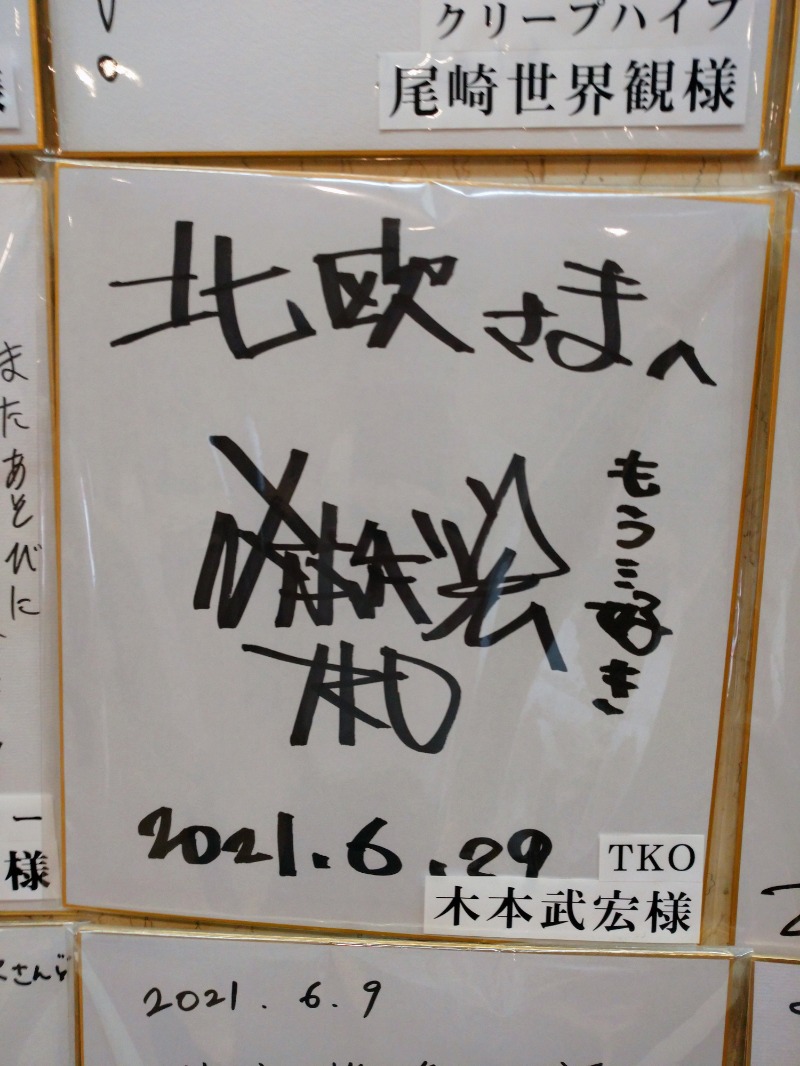 クリープハイプ
尾崎世界観様
様
北欧さまへ
もう…好き
TKO
2021.6.29
TKO
木本武宏様
またあそびに
ー
様
さんど
2021.6.9